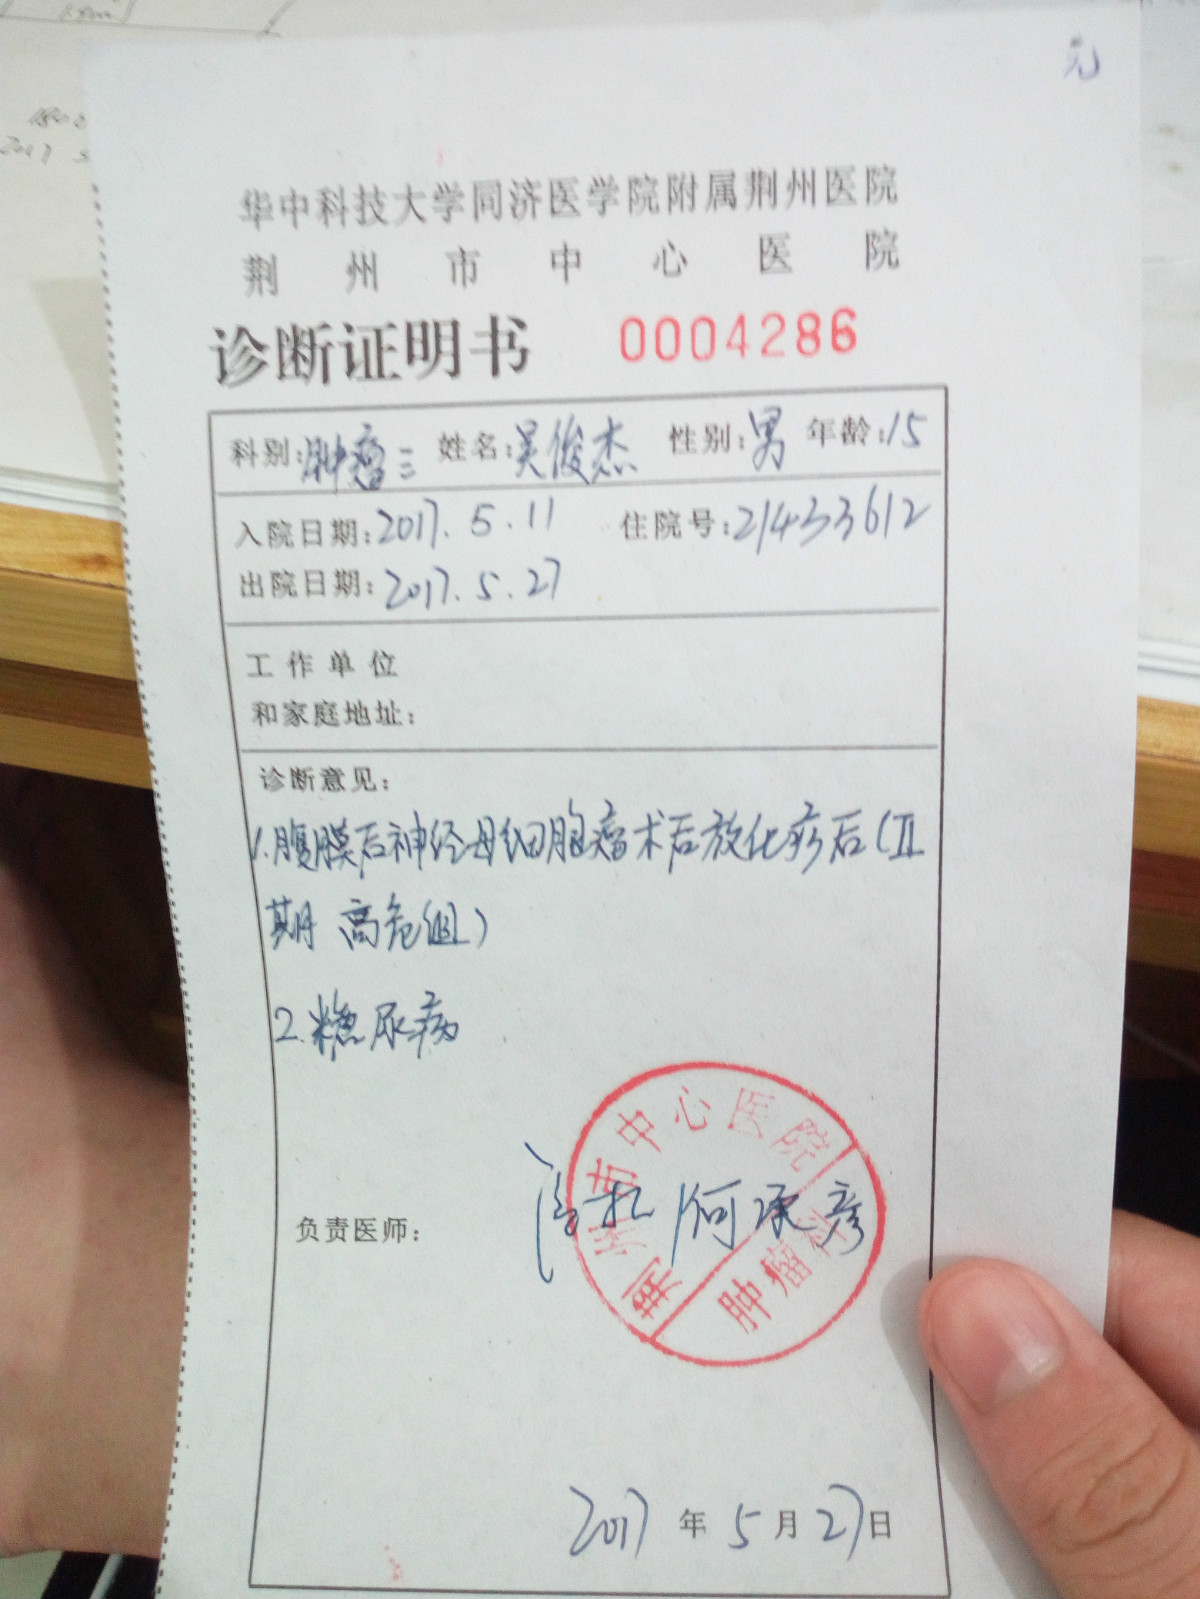 元
华中科技大学同济医学院附属荆州医院
荆州市中心医院
诊断证明书 0004286
科别:肿瘤三 姓名:吴俊杰 性别:男 年龄:15
入院日期:2017.5.11 住院号:21433612
出院日期:2017.5.27
工作单位
和家庭地址:
诊断意见:
1.腹膜后神经母细胞瘤术后放化疗后(II
期 高危组)
2.糖尿病
荆州市中心医院
肿瘤科
负责医师: 何承彦
2017年5月27日